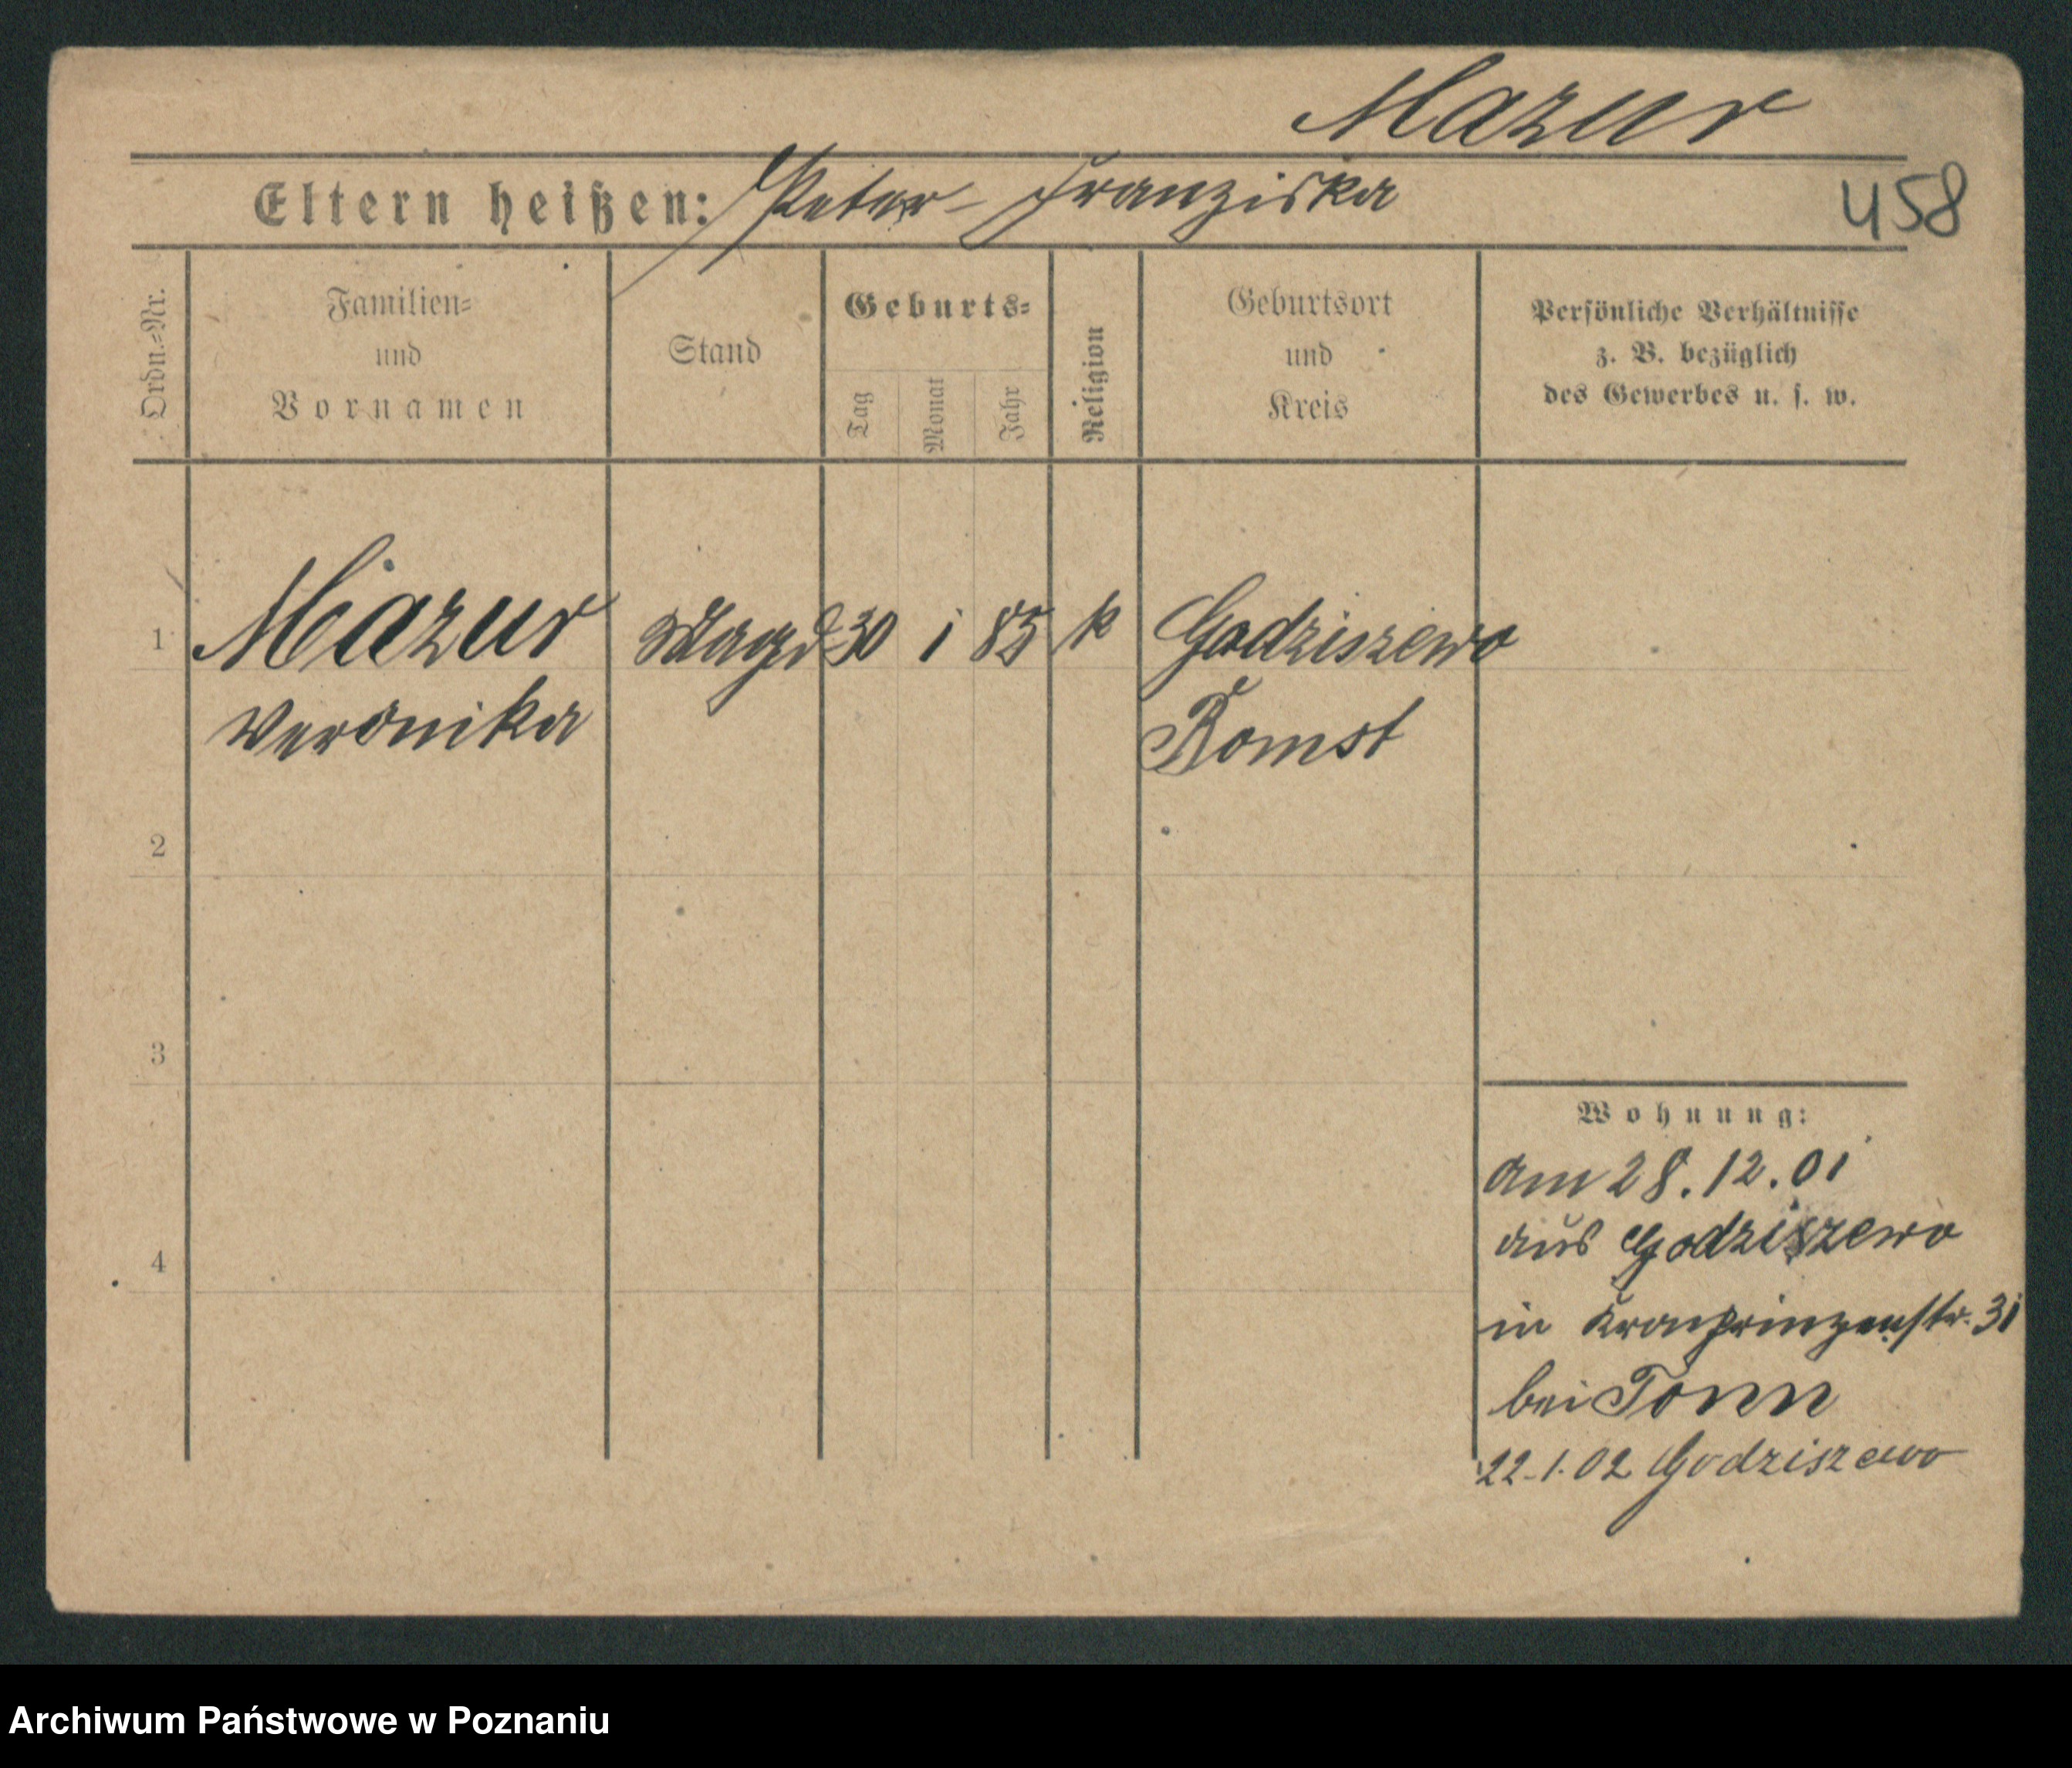 Mazur
Eltern heißen: Peter - Franziska
458
Ordn.-Nr.
Familien-
und
Vornamen
Stand
Geburts-
Tag
Monat
Jahr
Religion
Geburtsort
und
Kreis
Persönliche Verhältnisse
z. B. bezüglich
des Gewerbes u. s. w.
1 Mazur Magd 30 1 85 k Godziszewo
Veronika Bomst
2
3
4
Wohnung:
am 28.12.01
aus Godziszewo
in Kronprinzenstr. 31
bei Tonn
22.1.02 Godziszewo
Archiwum Państwowe w Poznaniu